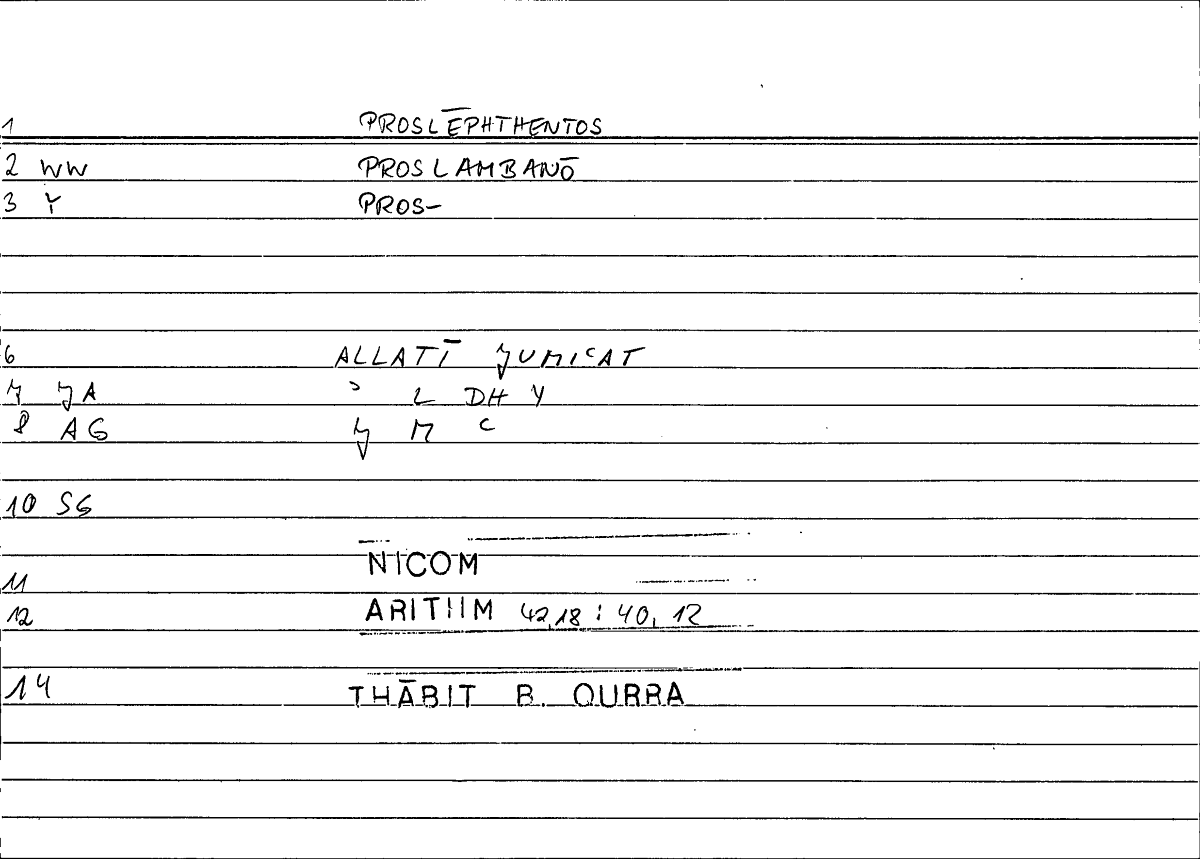 1 PROSLĒPHTHENTOS
2 WW PROSLAMBANŌ
3 Y PROS-
6 ALLATĪ ǦUMIʿAT
7 ǦA ʾ L DH Y
8 AG Ǧ M ʿ
10 SG
11 NICOM
12 ARITHM 42,18 : 40, 12
14 THĀBIT B. QURRA